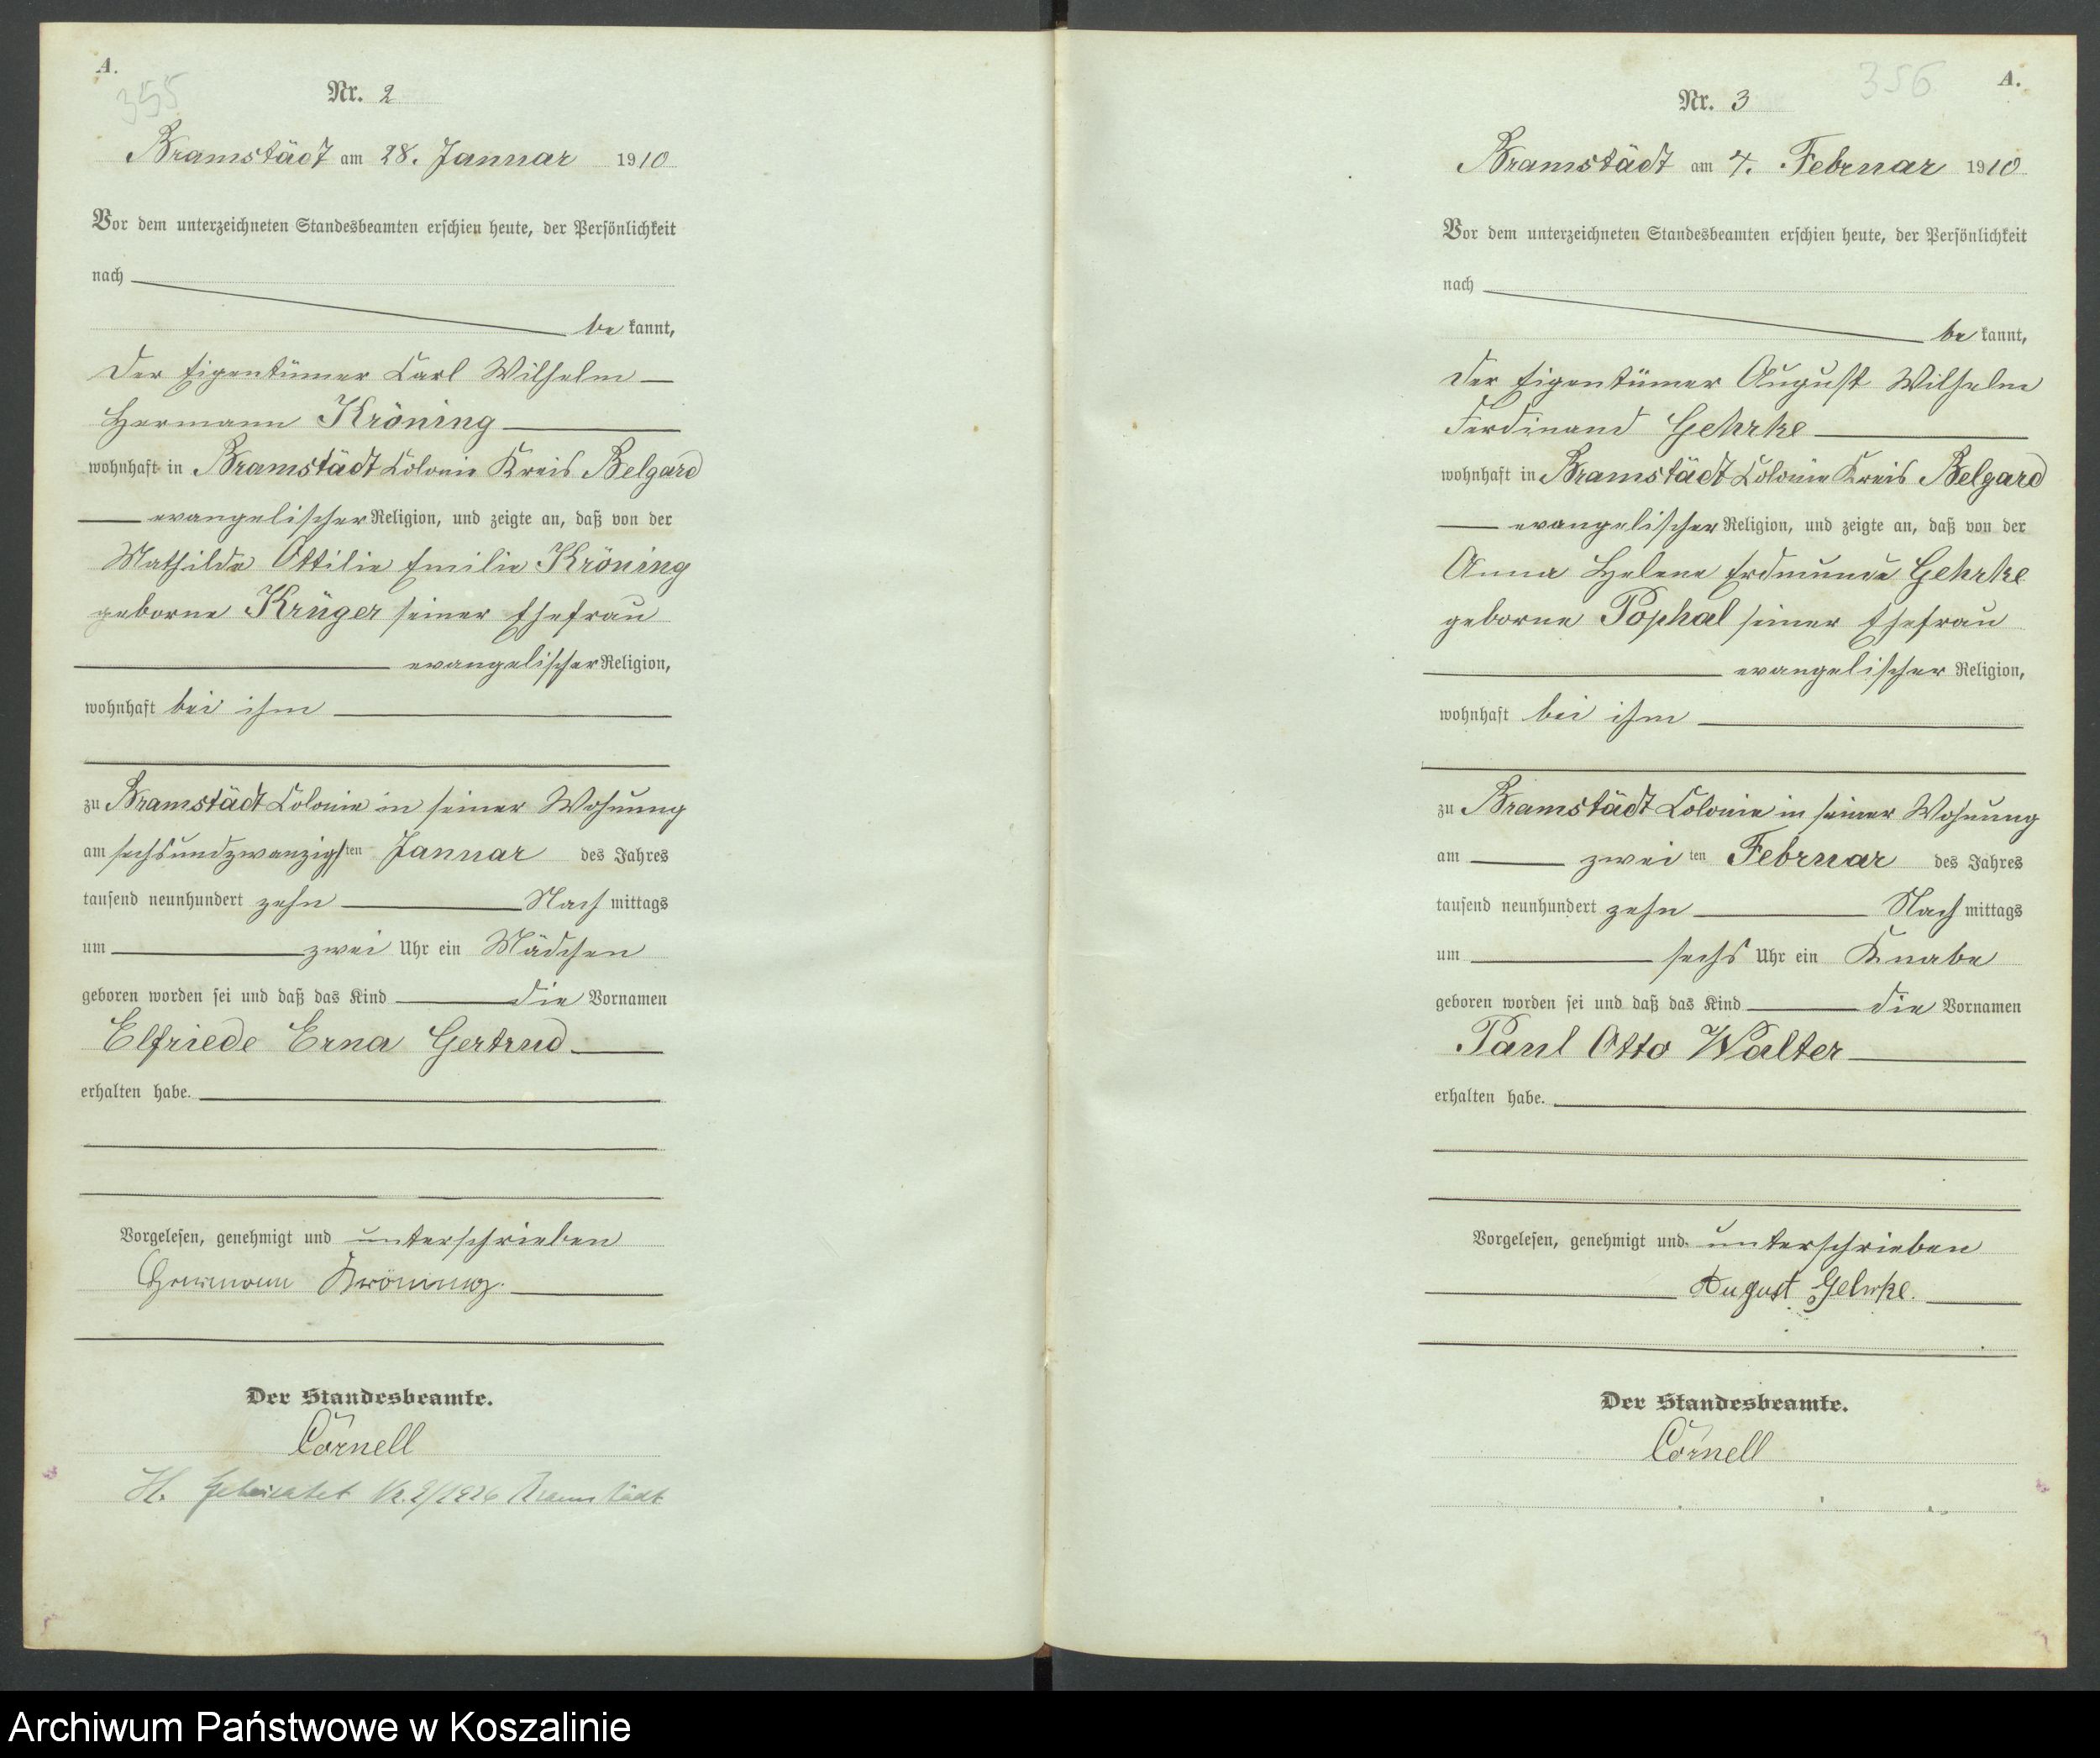 A.
355
Nr. 2
Bramstädt am 28. Januar 1910
Vor dem unterzeichneten Standesbeamten erschien heute, der Persönlichkeit
nach
be kannt,
der Eigentümer Carl Wilhelm
Hermann Kröning
wohnhaft in Bramstädt Colonie Kreis Belgard
evangelischer Religion, und zeigte an, daß von der
Mathilde Ottilie Emilie Kröning
geborne Krüger seiner Ehefrau
evangelischer Religion,
wohnhaft bei ihm
zu Bramstädt Colonie in seiner Wohnung
am sechsundzwanzigsten Januar des Jahres
tausend neunhundert zehn Nach mittags
um zwei Uhr ein Mädchen
geboren worden sei und daß das Kind die Vornamen
Elfriede Erna Gertrud
erhalten habe.
Vorgelesen, genehmigt und unterschrieben
Hermann Kröning.
Der Standesbeamte.
Cörnell
H. Geheiratet Nr. 2/1926 Bramstädt
356
A.
Nr. 3
Bramstädt am 4. Februar 1910
Vor dem unterzeichneten Standesbeamten erschien heute, der Persönlichkeit
nach
be kannt,
der Eigentümer August Wilhelm
Ferdinand Gehrke
wohnhaft in Bramstädt Colonie Kreis Belgard
evangelischer Religion, und zeigte an, daß von der
Anna Helene Erdmunde Gehrke
geborne Pophal seiner Ehefrau
evangelischer Religion,
wohnhaft bei ihm
zu Bramstädt Colonie in seiner Wohnung
am zwei ten Februar des Jahres
tausend neunhundert zehn Nach mittags
um sechs Uhr ein Knabe
geboren worden sei und daß das Kind die Vornamen
Paul Otto Walter
erhalten habe.
Vorgelesen, genehmigt und unterschrieben
August Gehrke.
Der Standesbeamte.
Cörnell
Archiwum Państwowe w Koszalinie